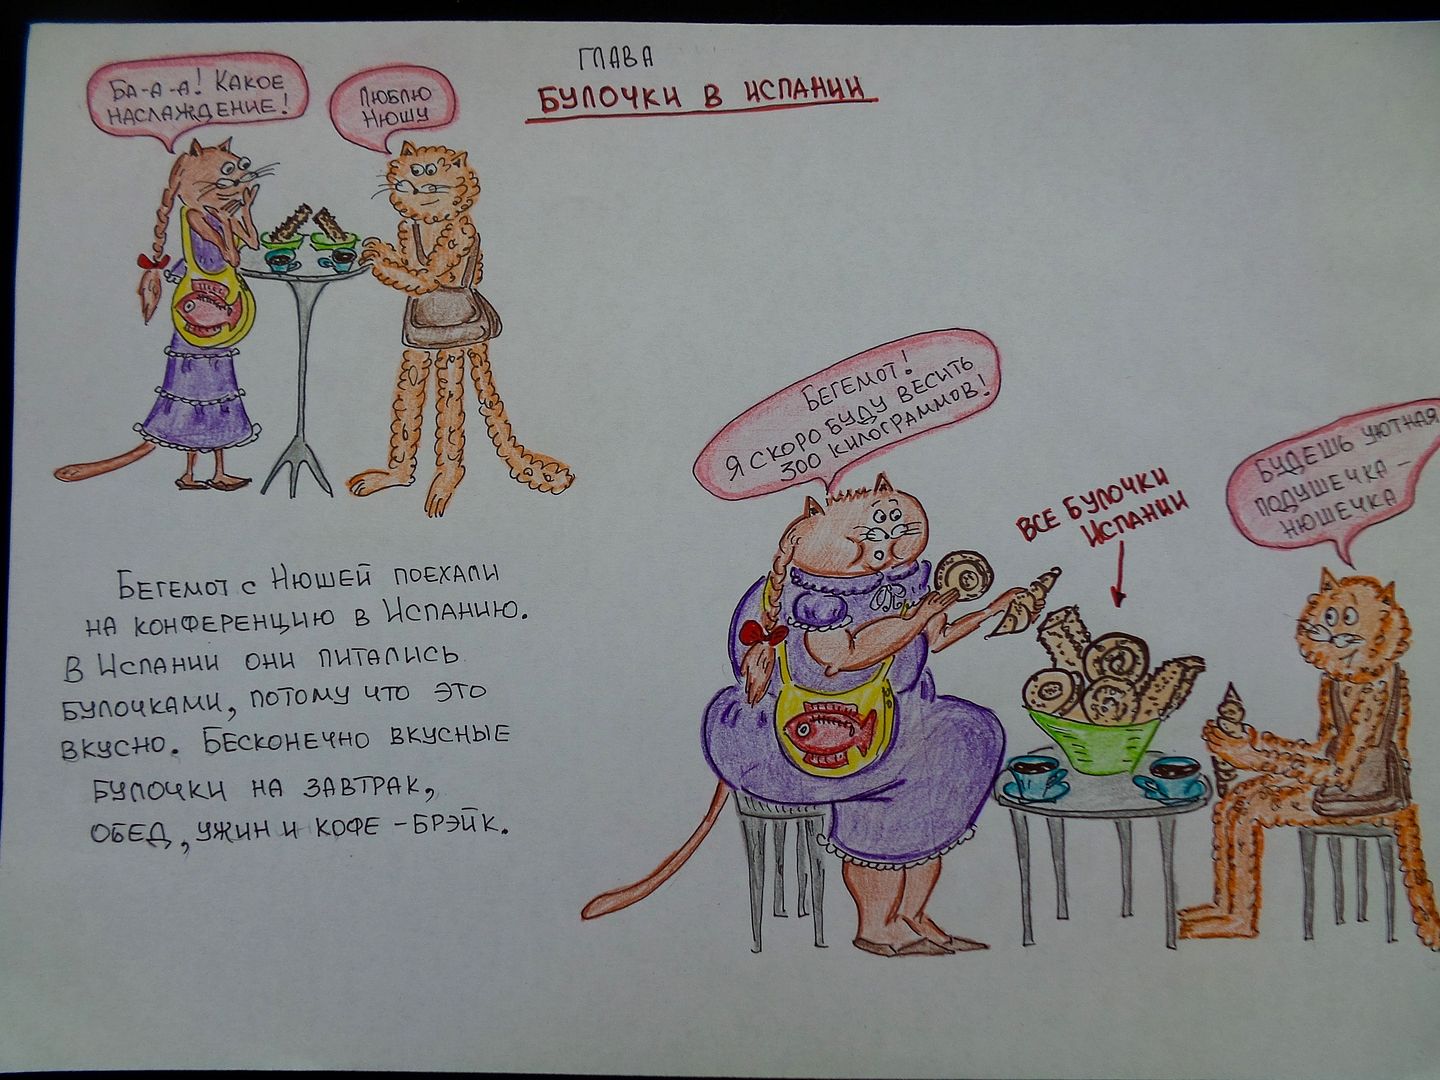 ГЛАВА
БУЛОЧКИ В ИСПАНИИ
БА-А-А! КАКОЕ
НАСЛАЖДЕНИЕ!
ЛЮБЛЮ
НЮШУ
БЕГЕМОТ С НЮШЕЙ ПОЕХАЛИ
НА КОНФЕРЕНЦИЮ В ИСПАНИЮ.
В ИСПАНИИ ОНИ ПИТАЛИСЬ
БУЛОЧКАМИ, ПОТОМУ ЧТО ЭТО
ВКУСНО. БЕСКОНЕЧНО ВКУСНЫЕ
БУЛОЧКИ НА ЗАВТРАК,
ОБЕД, УЖИН И КОФЕ-БРЭЙК.
БЕГЕМОТ!
Я СКОРО БУДУ ВЕСИТЬ
300 КИЛОГРАММОВ!
ВСЕ БУЛОЧКИ
ИСПАНИИ
БУДЕШЬ УЮТНАЯ
ПОДУШЕЧКА-
НЮШЕЧКА